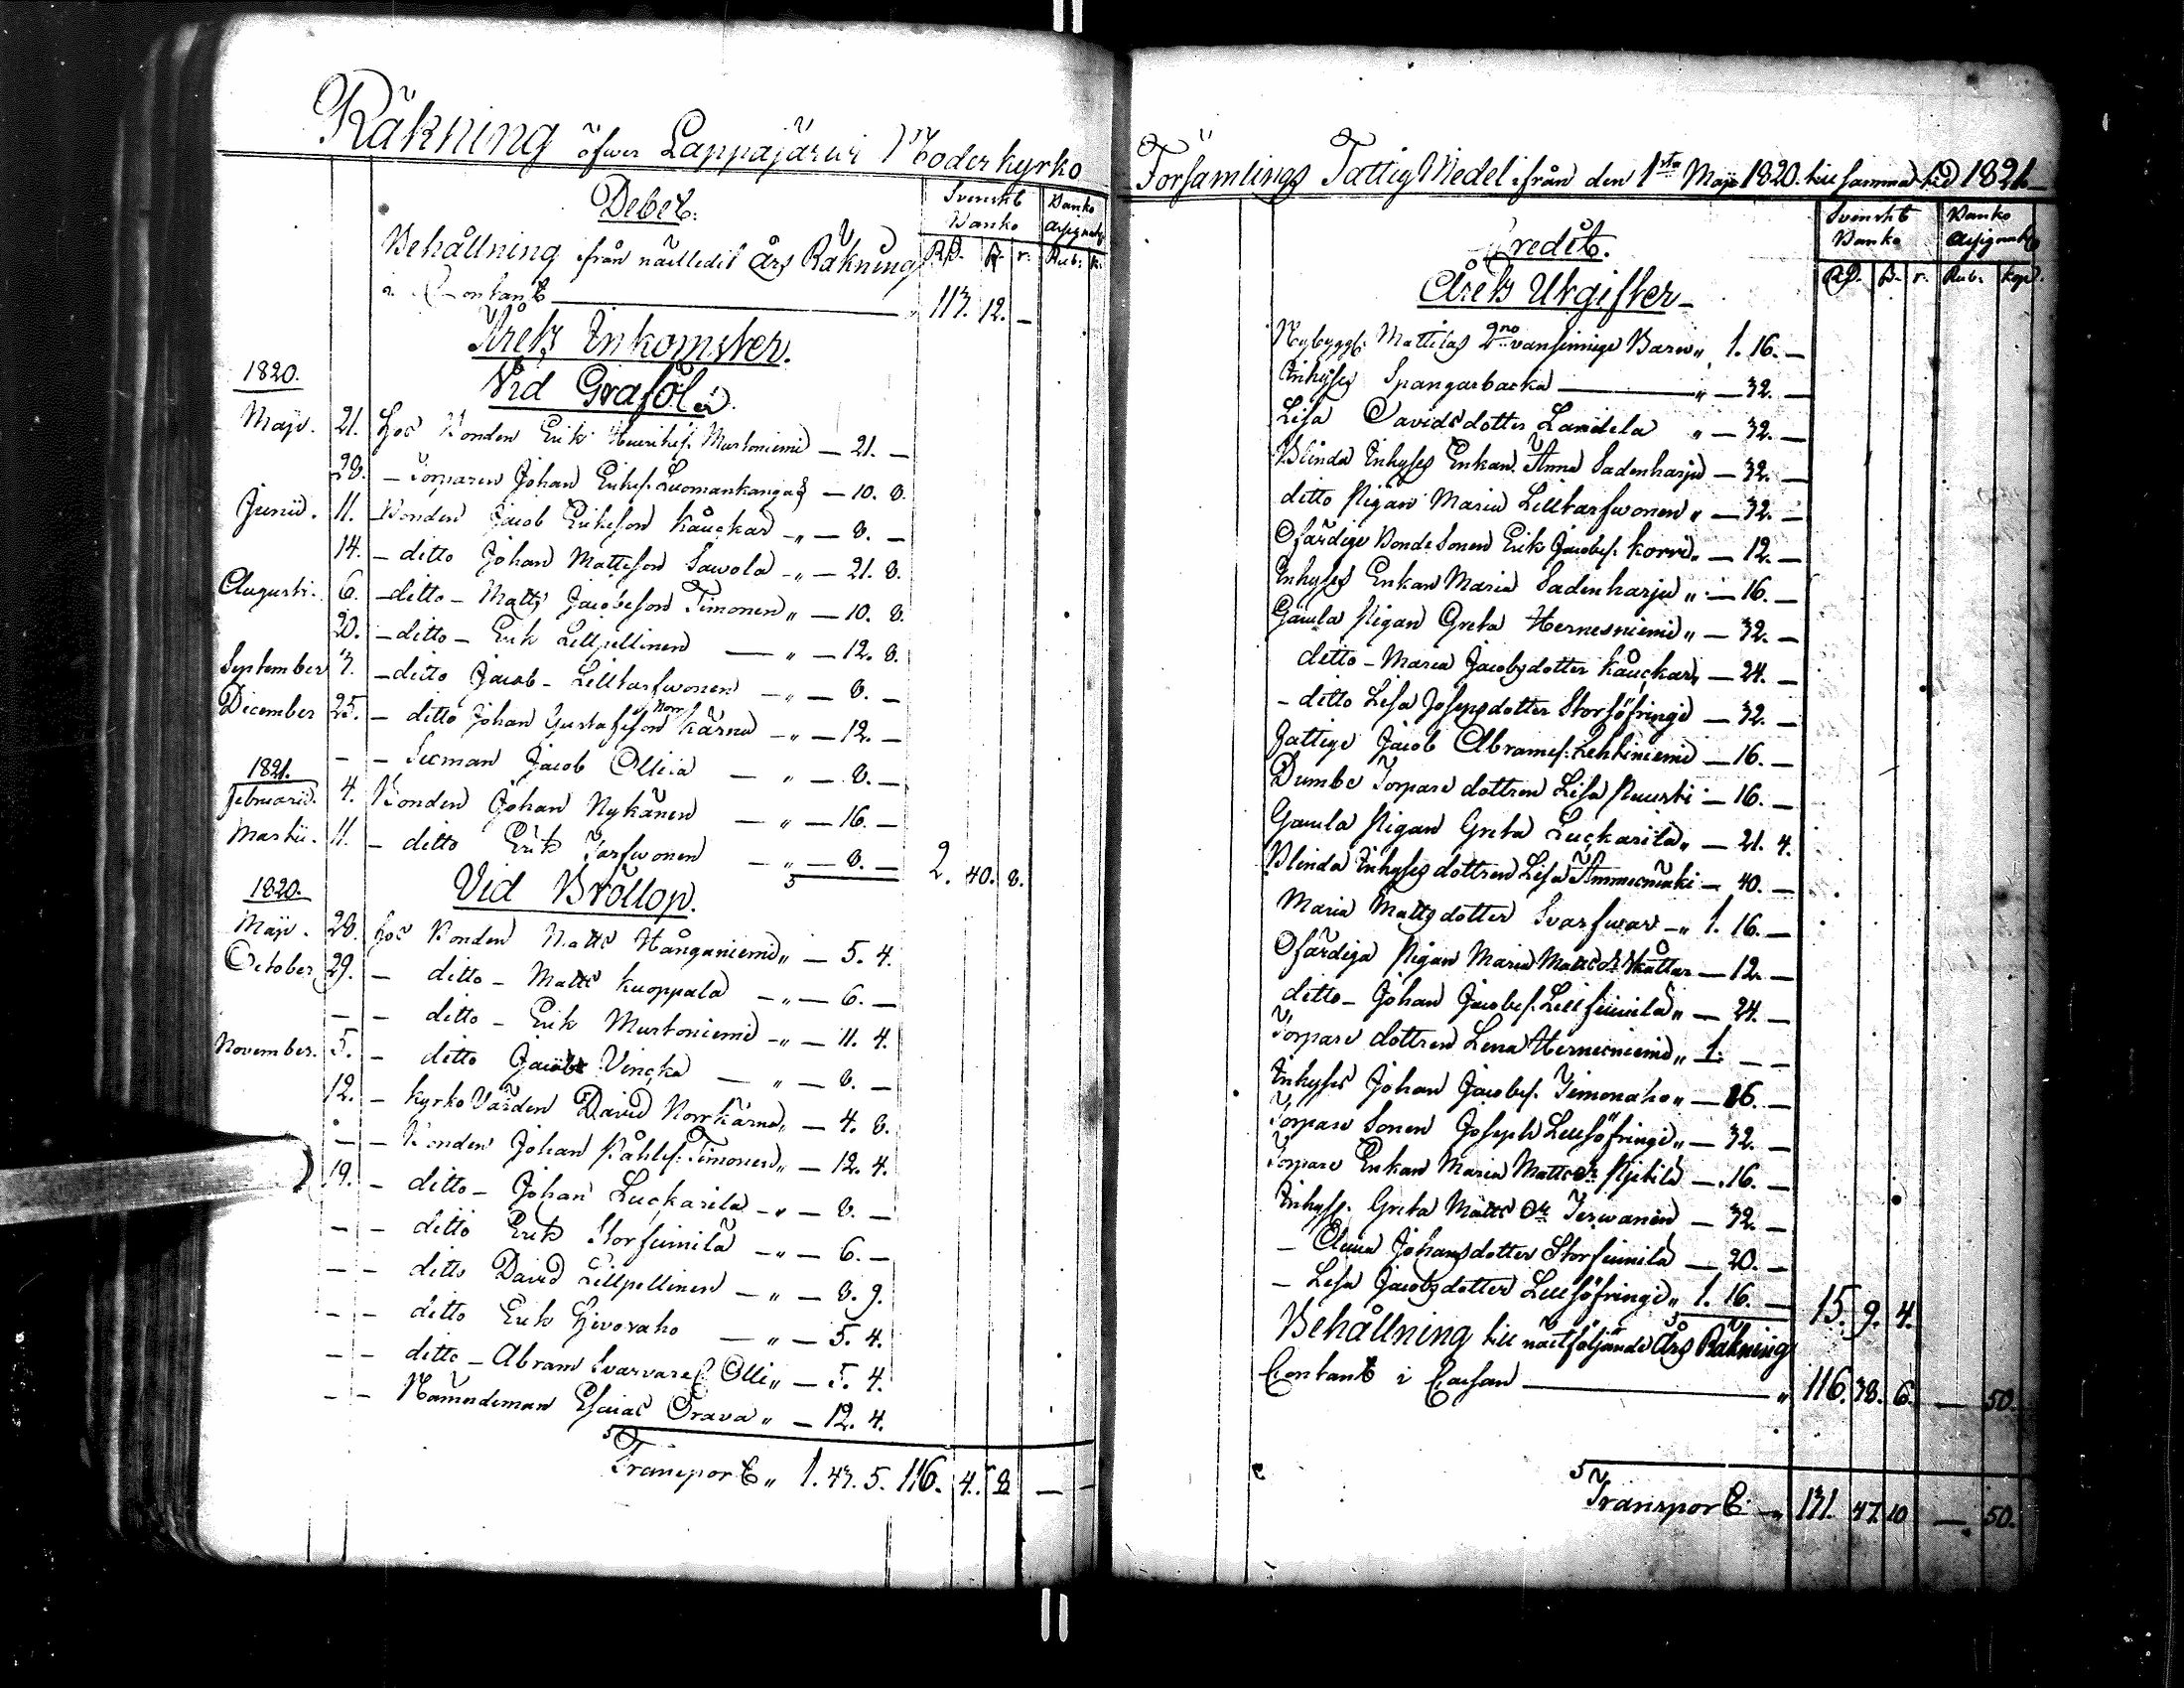 Räkning öfwer Lappajärwi Moderkyrko
Debet.
Svenskt Banko
Banko Assignat:
RD. ß. r. Rub: k.
Behållning från näslledit Års Räkning
i Contant " 113. 12. —
Årets Inkomster.
Vid Grafölen.
1820.
Maji. 21. Hos Bonden Erik Henriks. Murtoniemi — 21. —
28. — Torparen Johan Eriks. Luomankangas — 10. 8.
Junii. 11. Bonden Jacob Erikson Kåuckar — " — 8. —
14. — ditto Johan Mattsson Sawola — " — 21. 8.
Augusti. 6. — ditto — Matts Jacobsson Timonen " — 10. 8.
20. — ditto — Erik Lillpellinen — " — 12. 8.
September 3. — ditto Jacob — Lilltarfwonen — " — 8. —
December 25. — ditto Johan Gustafsson Norrkärnä — " — 12. —
— — Sexman Jacob Ollila — " — 8. —
1821.
Februarii. 4. Bonden Johan Nykänen — " — 16. —
Martii. 11. — ditto Erik Tarfwonen — " — 8. — 2. 40. 8.
Vid Bröllop.
1820.
Maji. 28. hos Bonden Matts Hånganiemi " — 5. 4.
October 29. — ditto — Matts Kuoppala — " — 6. —
— — ditto — Erik Murtoniemi — " — 11. 4.
November. 5. — ditto Jacob Vinçka — " — 8. —
12. — Kyrko Värden David Norrkärnä " — 4. 8.
— — Bonden Johan Påhls. Timonen " — 12. 4.
19. — ditto — Johan Luckarila — " — 8. —
— — ditto Erik Storfimilä — " — 6. —
— — ditto David Lillpellinen — " — 8. 9.
— — ditto Erik — " — 5. 4.
— — ditto — Abram Svarvare Olli " — 5. 4.
— — Nämndeman Esaias Orava " — 12. 4.
Transport " 1. 43. 5. 116. 4. 8 — —
Församlings Fattig Medel ifrån den 1sta Maji 1820. till samma tid 1821.
Credit.
Svenskt Banko
Banko Assignat:
RD. ß. r. Rub. kop.
Årets Utgifter —
Nybygg. Mattilas 2no vansinnige Barn " 1. 16. —
Inhyses Spangarbacka " — 32. —
Lisa Davidsdotter Landela " — 32. —
Blinda Inhyses Enkan Anna Sadenharju — 32. —
ditto Pigan Maria Lilltarfwonen " — 32. —
Ofärdige Bonde Sonen Erik Jacobs. Korvi " — 12. —
Inhyses Enkan Maria Sadenharju " — 16. —
Gamla Pigan Greta Hernesniemi " — 32. —
ditto — Maria Jacobsdotter Kåuckar " — 24. —
— ditto Lisa Josepsdotter Storsöfringi — 32. —
Fattige Jacob Abrams. Lehtiniemi — 16. —
Dumbe Torpare dottren Lisa Ruuski — 16. —
Gamla Pigan Greta Luckarila " — 21. 4.
Blinda Inhyses dottren Lisa Ammesmäki — 40. —
Maria Mattsdotter Svarfwar — " 1. 16. —
Ofärdiga Pigan Maria Matts dr Kåttar — 12. —
ditto — Johan Jacobs. Lillfimilä " — 24. —
Torpare dottren Lena Hernesniemi " 1. — —
Inhyses Johan Jacobs. Timonaho " — 16. —
Torpare Sonen Joseph Lillsöfringi " — 32. —
Torpare Enkan Maria Matts dr — 16. —
Inhyses Greta Matts dr Terwanen — 32. —
— Johansdotter Storfimilä — 20. —
— Lisa Jacobsdotter Lillsöfringi " 1. 16. — 15. 9. 4.
Behållning till nästföljande Års Räkning
Contant i Cassan " 116. 38. 6. — 50.
Transport — " 131. 47. 10 — 50.